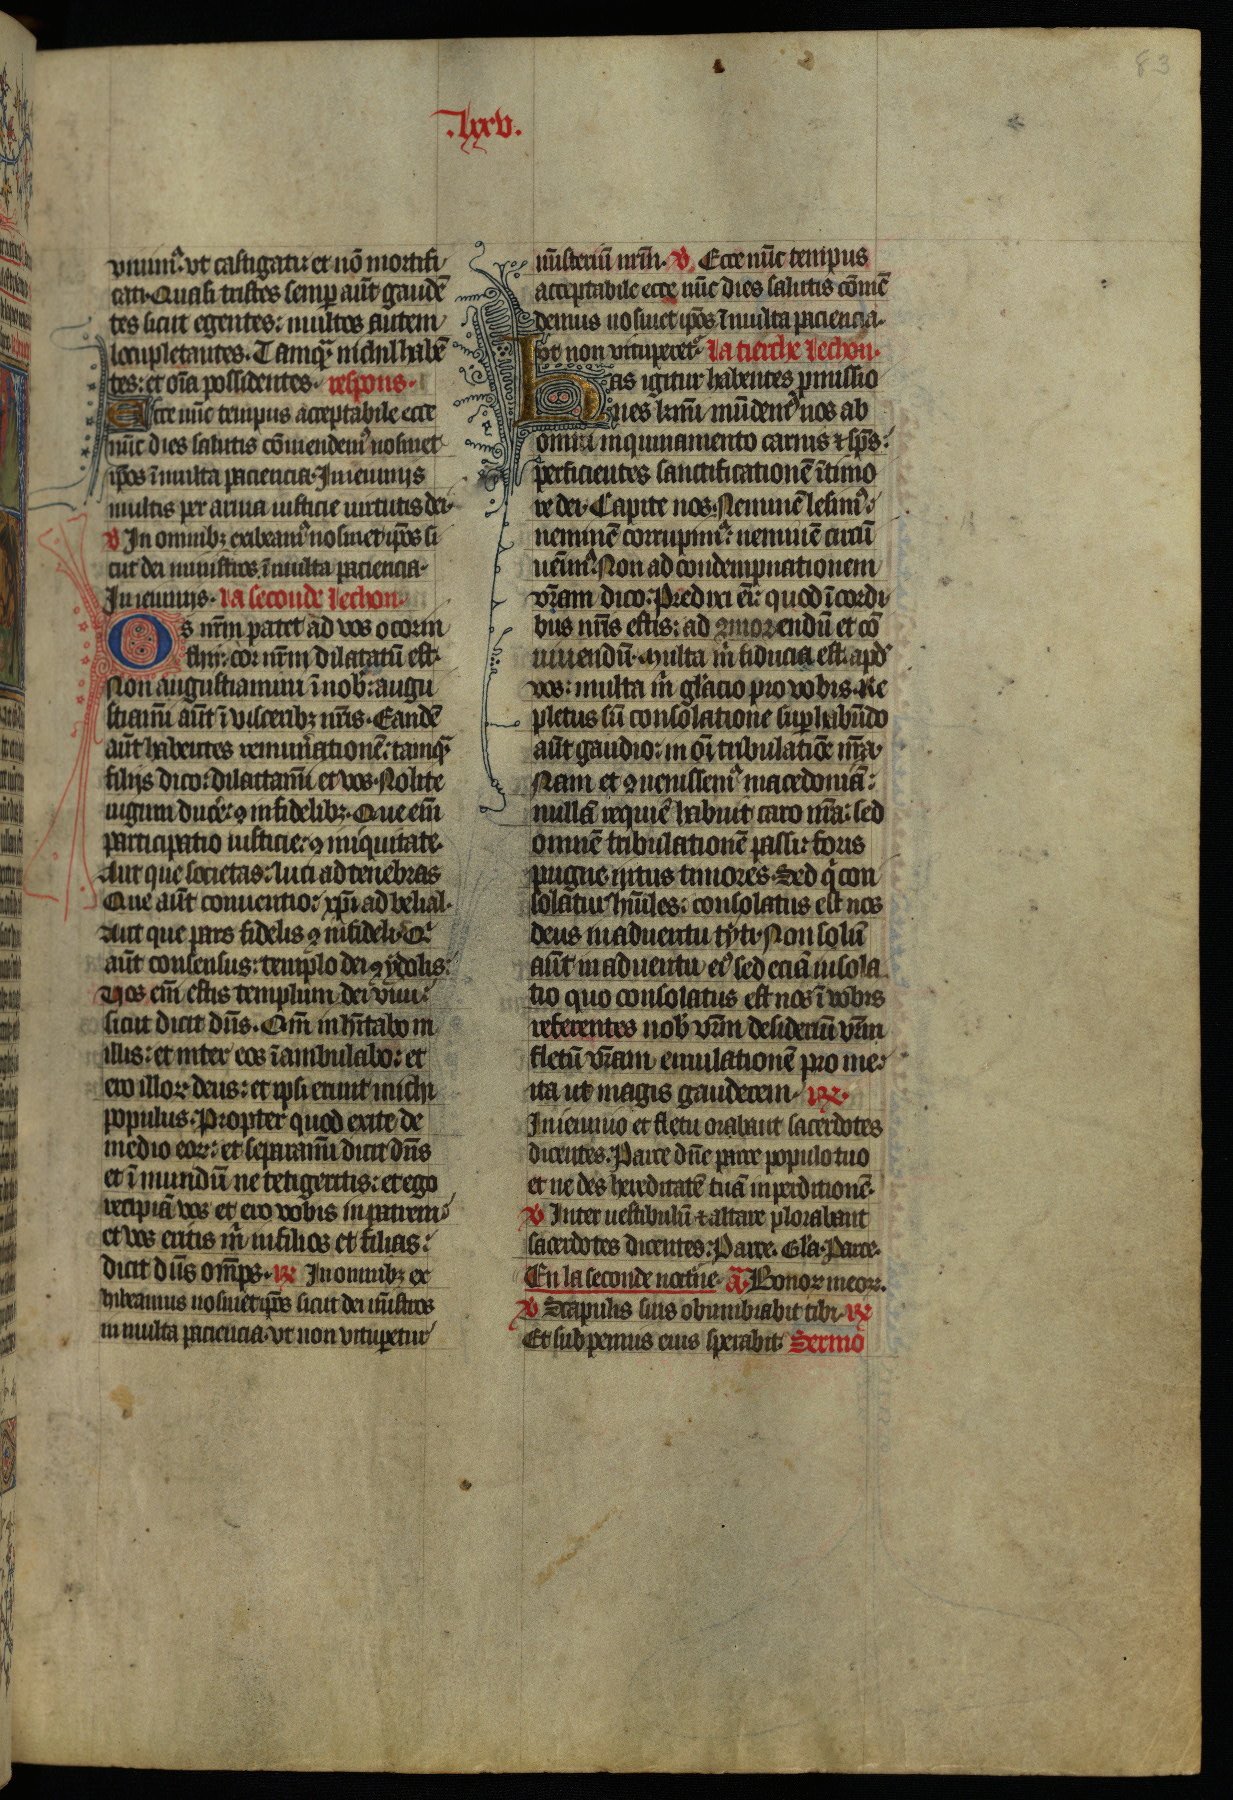 83
.lxxv.
viuim⁹. vt castigati: et nō mortifi
cati. Quasi tristes semp aūt gaudē
tes sicut egentes: multos autem
locupletantes. Tamq̄ nichil habē
tes: et oīa possidentes. respons.
Ecce nūc tempus acceptabile ecce
nūc dies salutis cōmendem⁹ nosmet
ip̄os ī multa paciencia. In ieiunijs
multis per arma iusticie uirtutis dei.
V In omnibȝ exibeam⁹ nosmet ip̄os si
cut dei ministros ī multa paciencia.
In ieiunijs. La seconde lechon.
Os nr̄m patet ad vos o corin
thii: cor nr̄m dilatatū est.
Non angustiamini ī nob̄: angu
stiam̄i aūt ī visceribȝ nr̄is. Eandē
aūt habentes remun̄ationē: tamq̄
filijs dico: dilatam̄i et vos. Nolite
iugum duc̄e: ꝯ infidelibȝ. Que em̄
participatio iusticie: ꝯ iniquitate.
Aut que societas: luci ad tenebras
Que aūt conuentio: xp̄i ad belial.
Aut que pars fidelis ꝯ infideli. Q̄
aūt consensus: templo dei ꝯ ydolis:
Vos em̄ estis templum dei viui:
sicut dicit dn̄s. Qm̄ inh̄itabo in
illis: et inter eos īambulabo: et
ero illoꝝ deus: et ipsi erunt michi
populus. Propter quod exite de
medio eoꝝ: et separam̄i dicit dn̄s
et ī mundū ne tetigeritis: et ego
recipiā vos et ero vobis in patrem:
et vos eritis m̄ in filios et filias:
dicit dn̄s om̄ps. ℞ In omnibȝ ex
hibeamus nosmet ip̄os sicut dei mīstros
in multa paciencia. vt non vitupetur
mīsteriū nr̄m. V Ecce nūc tempus
acceptabile ecce nūc dies salutis cōmē
demus nosmet ip̄os ī multa paciencia.
vt non vituperet⁹. La tierche lechon.
Has igitur habentes p̄missio
nes kr̄mi mūdem⁹ nos ab
omni inquinamento carnis ⁊ sp̄s:
perficientes sanctificationē ī timo
re dei. Capite nos. Neminē lesim⁹:
neminē corrupim⁹: neminē circū
uēim⁹. Non ad condempnationem
vr̄am dico: Predixi em̄: quod ī cordi
bus nr̄is estis: ad ꝯmoꝛiendū et cō
uiuendū. Multa m̄ fiducia est apd̄
vos: multa m̄ gl̄acio pro vobis. Re
pletus sū consolatione sup̄habūdo
aūt gaudio: in oī tribulatiōe nr̄a.
Nam et ꝯ uenissem⁹ macedoniā:
nullā requiē habuit caro nr̄a: sed
omnē tribulationē passi: foris
pugne intus timores. Sed q̄ con
solatur hūiles: consolatus est nos
deus in aduentu tyti. Non solū
aūt in aduentu ei⁹ sed eciā in sola
tio quo consolatus est nos ī vobis
referentes nob̄ vr̄m desideriū vr̄m
fletū vr̄am emulationē pro me:
ita ut magis gauderem. ℞.
In ieiunio et fletu orabant sacerdotes
dicentes. Parce dn̄e parce populo tuo
et ne des hereditatē tuā in perditionē.
V Inter uestibulū ⁊ altare plorabant
sacerdotes dicentes: Parce. Gl̄a. Parce.
En la seconde noct̄ne. ā. Bonoꝝ meoꝝ.
V Scapulis suis obumbrabit tibi. ℞
Et sub pennis eius sperabit. Sermo